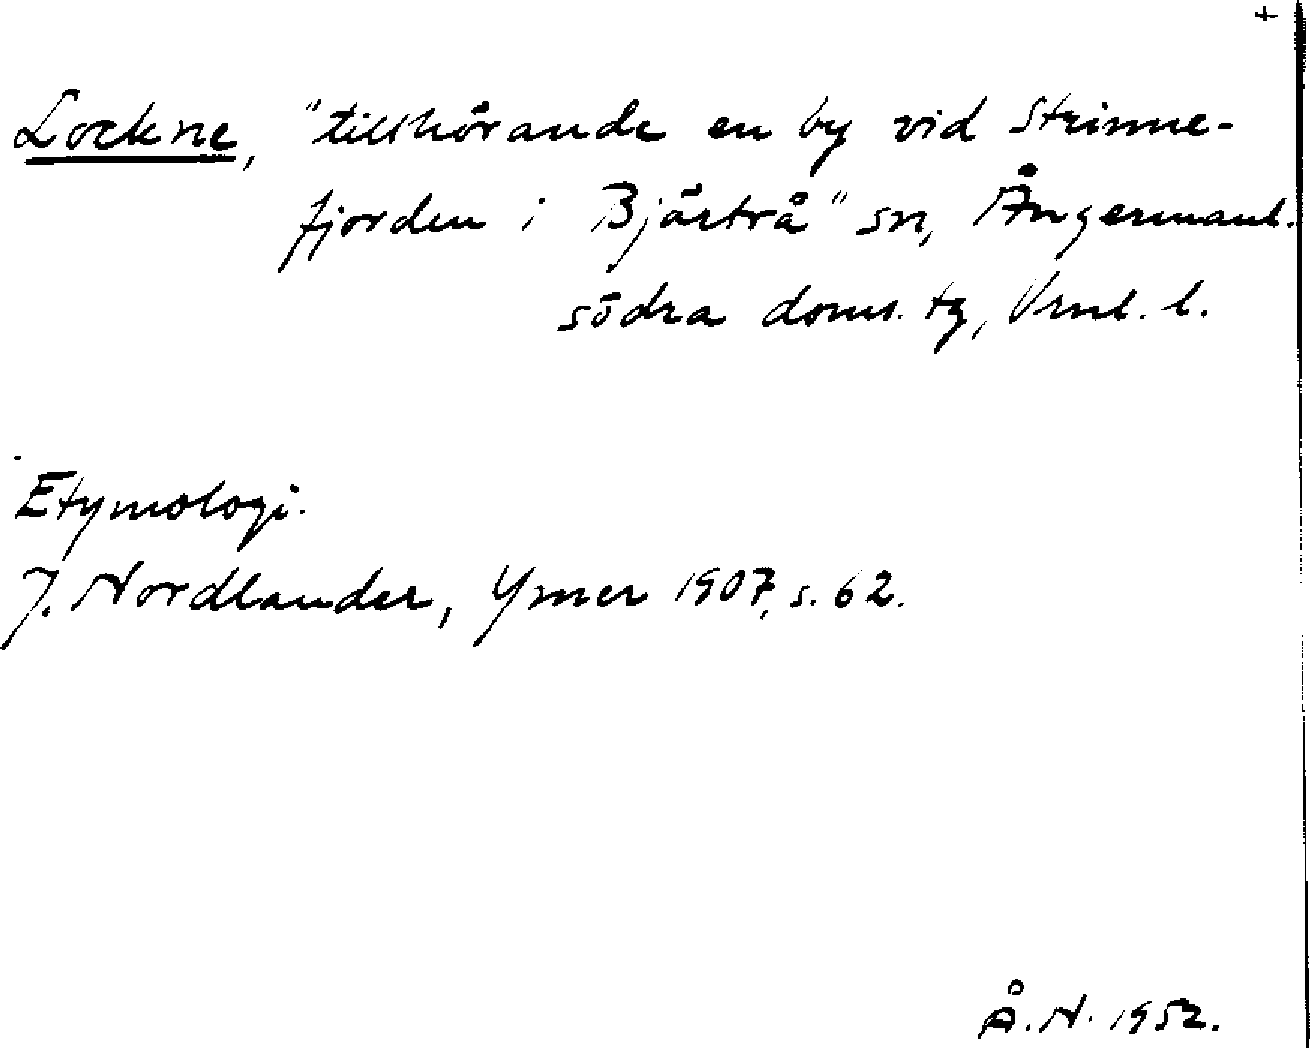 +
Lockne, "tillhörande en by vid Strinne-
fjorden i Bjärtrå" sn, Ångermanl.
södra doms. tg, Vrnl. l.
Etymologi.
J. Nordlander, Ymer 1907, s. 62.
Å.N. 1952.